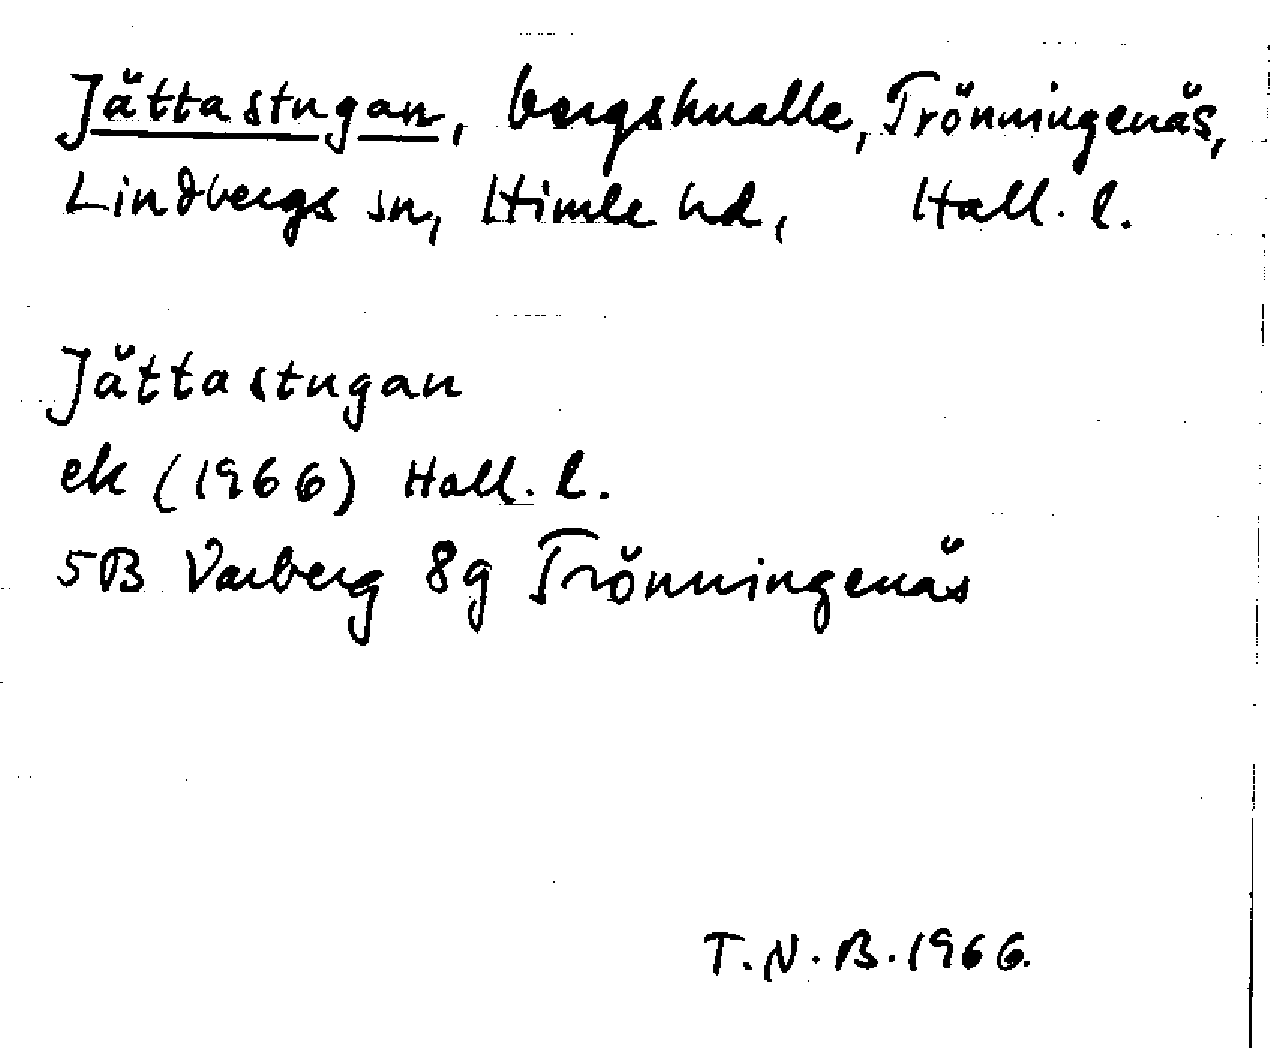 Jättastugan, bergsknalle, Trönningenäs,
Lindbergs sn, Himle hd, Hall. l.
Jättastugan
ek (1966) Hall. l.
5B Varberg 8g Trönningenäs
T.N.B. 1966.